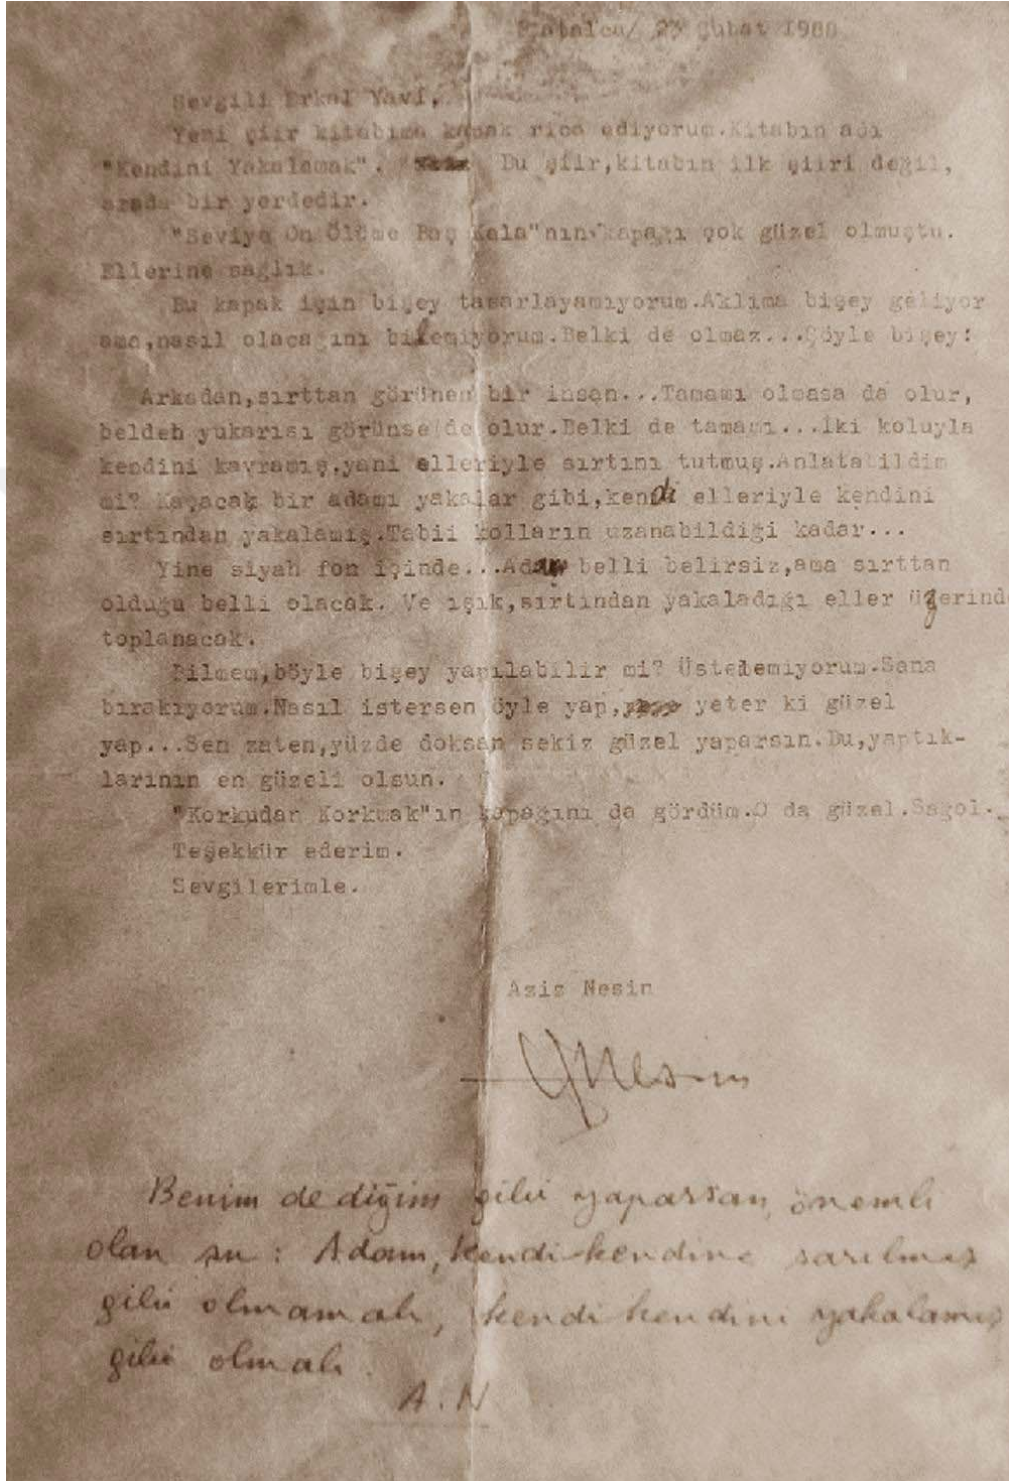 Çatalca/ 23 Şubat 1988
Sevgili Erkal Yavi,
Yeni şiir kitabıma kapak rica ediyorum.Kitabın adı
"Kendini Yakalamak". Bu şiir,kitabın ilk şiiri değil,
arada bir yerdedir.
"Seviye On Ölüme Beş Kala"nın kapağı çok güzel olmuştu.
Ellerine sağlık.
Bu kapak için bişey tasarlayamıyorum.Aklıma bişey geliyor
ama,nasıl olacağını bilemiyorum.Belki de olmaz...Şöyle bişey:
Arkadan,sırttan görünen bir insan...Tamamı olmasa da olur,
belden yukarısı görünse de olur.Belki de tamamı...İki koluyla
kendini kavramış,yani elleriyle sırtını tutmuş.Anlatabildim
mi? Kaçacak bir adamı yakalar gibi,kendi elleriyle kendini
sırtından yakalamış.Tabii kolların uzanabildiği kadar...
Yine siyah fon içinde...Adam belli belirsiz,ama sırttan
olduğu belli olacak. Ve ışık,sırtından yakaladığı eller üzerinde
toplanacak.
Bilmem,böyle bişey yapılabilir mi? Üstelemiyorum.Sana
bırakıyorum.Nasıl istersen öyle yap, yeter ki güzel
yap...Sen zaten,yüzde doksan sekiz güzel yaparsın.Bu,yaptık-
larının en güzeli olsun.
"Korkudan Korkmak"ın kapağını da gördüm.O da güzel.Sagol.
Teşekkür ederim.
Sevgilerimle.
Aziz Nesin
Benim dediğim gibi yaparsan, önemli
olan şu: Adam, kendi kendine sarılmış
gibi olmamalı, kendi kendini yakalamış
gibi olmalı.
A.N